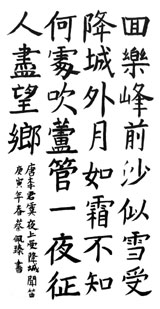 回樂峰前沙似雪受
降城外月如霜不知
何處吹蘆管一夜征
人盡望鄉
唐李君虞夜上受降城聞笛
庚寅年春蔡佩臻書